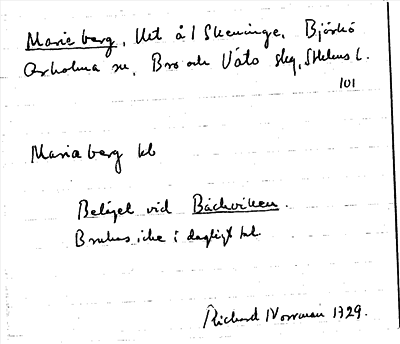 Marieberg, Uet å 1 Skeninge, Björkö
Arholma sn, Bro och Vätö skg, Sthlms l.
101
Mariaberg kb
Beläget vid Bäckviken.
Brukas icke i dagligt tal.
Richard Norrman 1929.